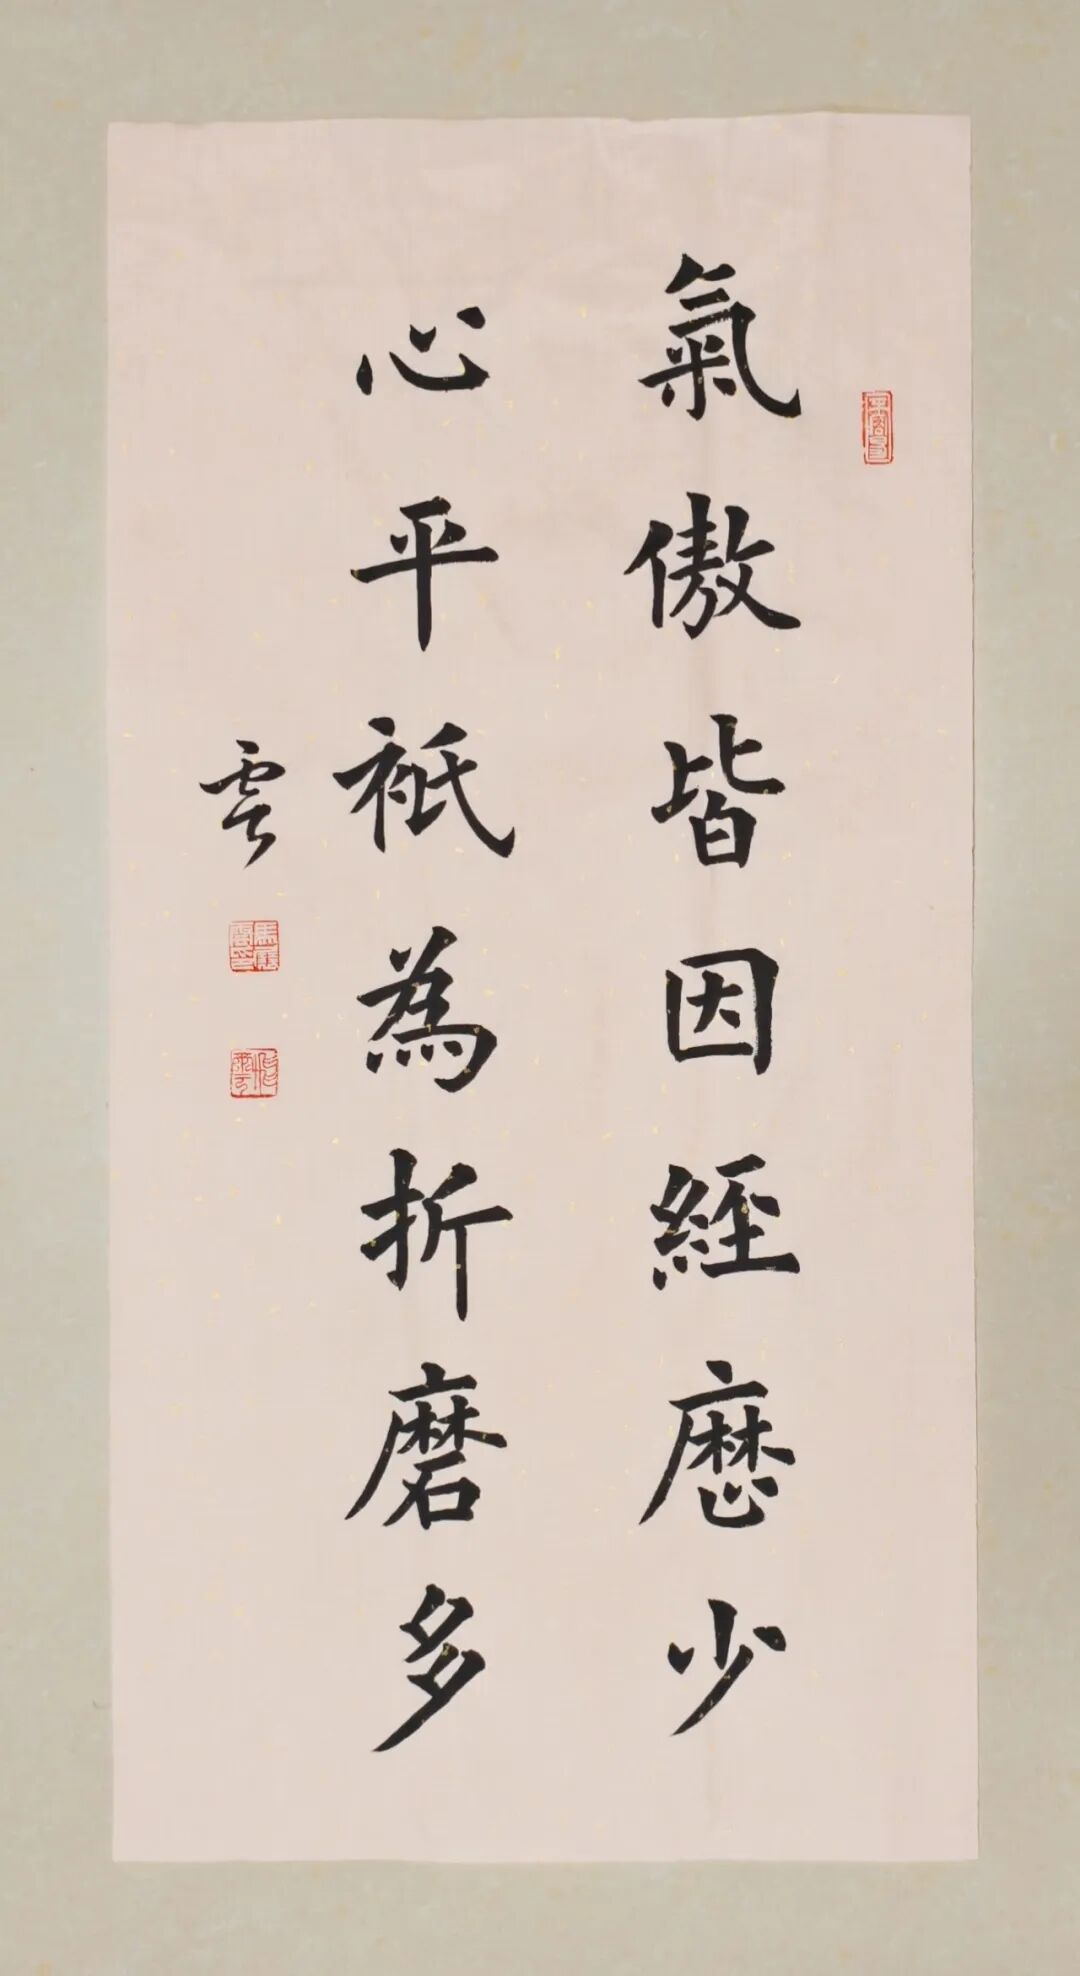 氣傲皆因經歷少
心平祇為折磨多
雲